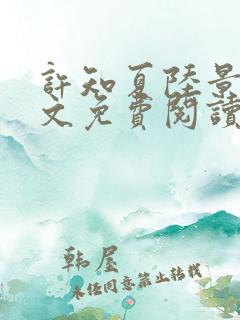 許知夏陸景
文免費閱讀
韩屋
未经同意禁止转载